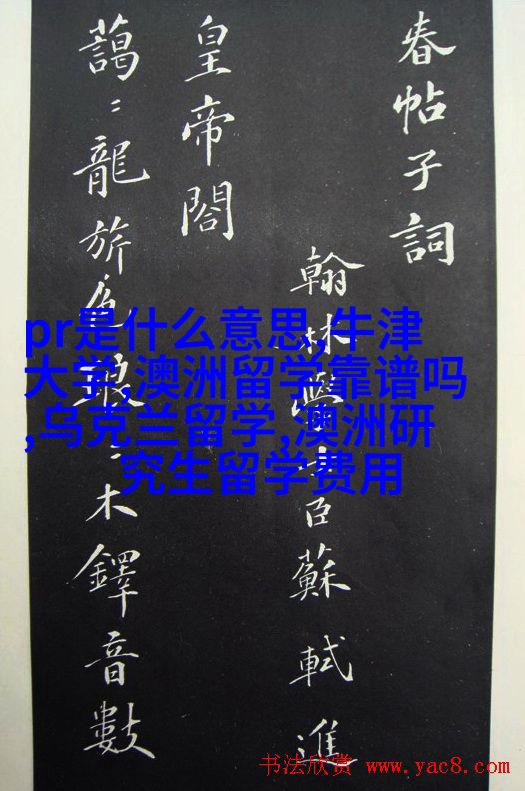 春帖子詞
翰林臣蘇軾進
皇帝閣
藹〻龍旂色〻木鐸音數
pr是什么意思,牛津
大学,澳洲留学靠谱吗
,乌克兰留学,澳洲研
究生留学费用
书法欣赏 www.yac8.com